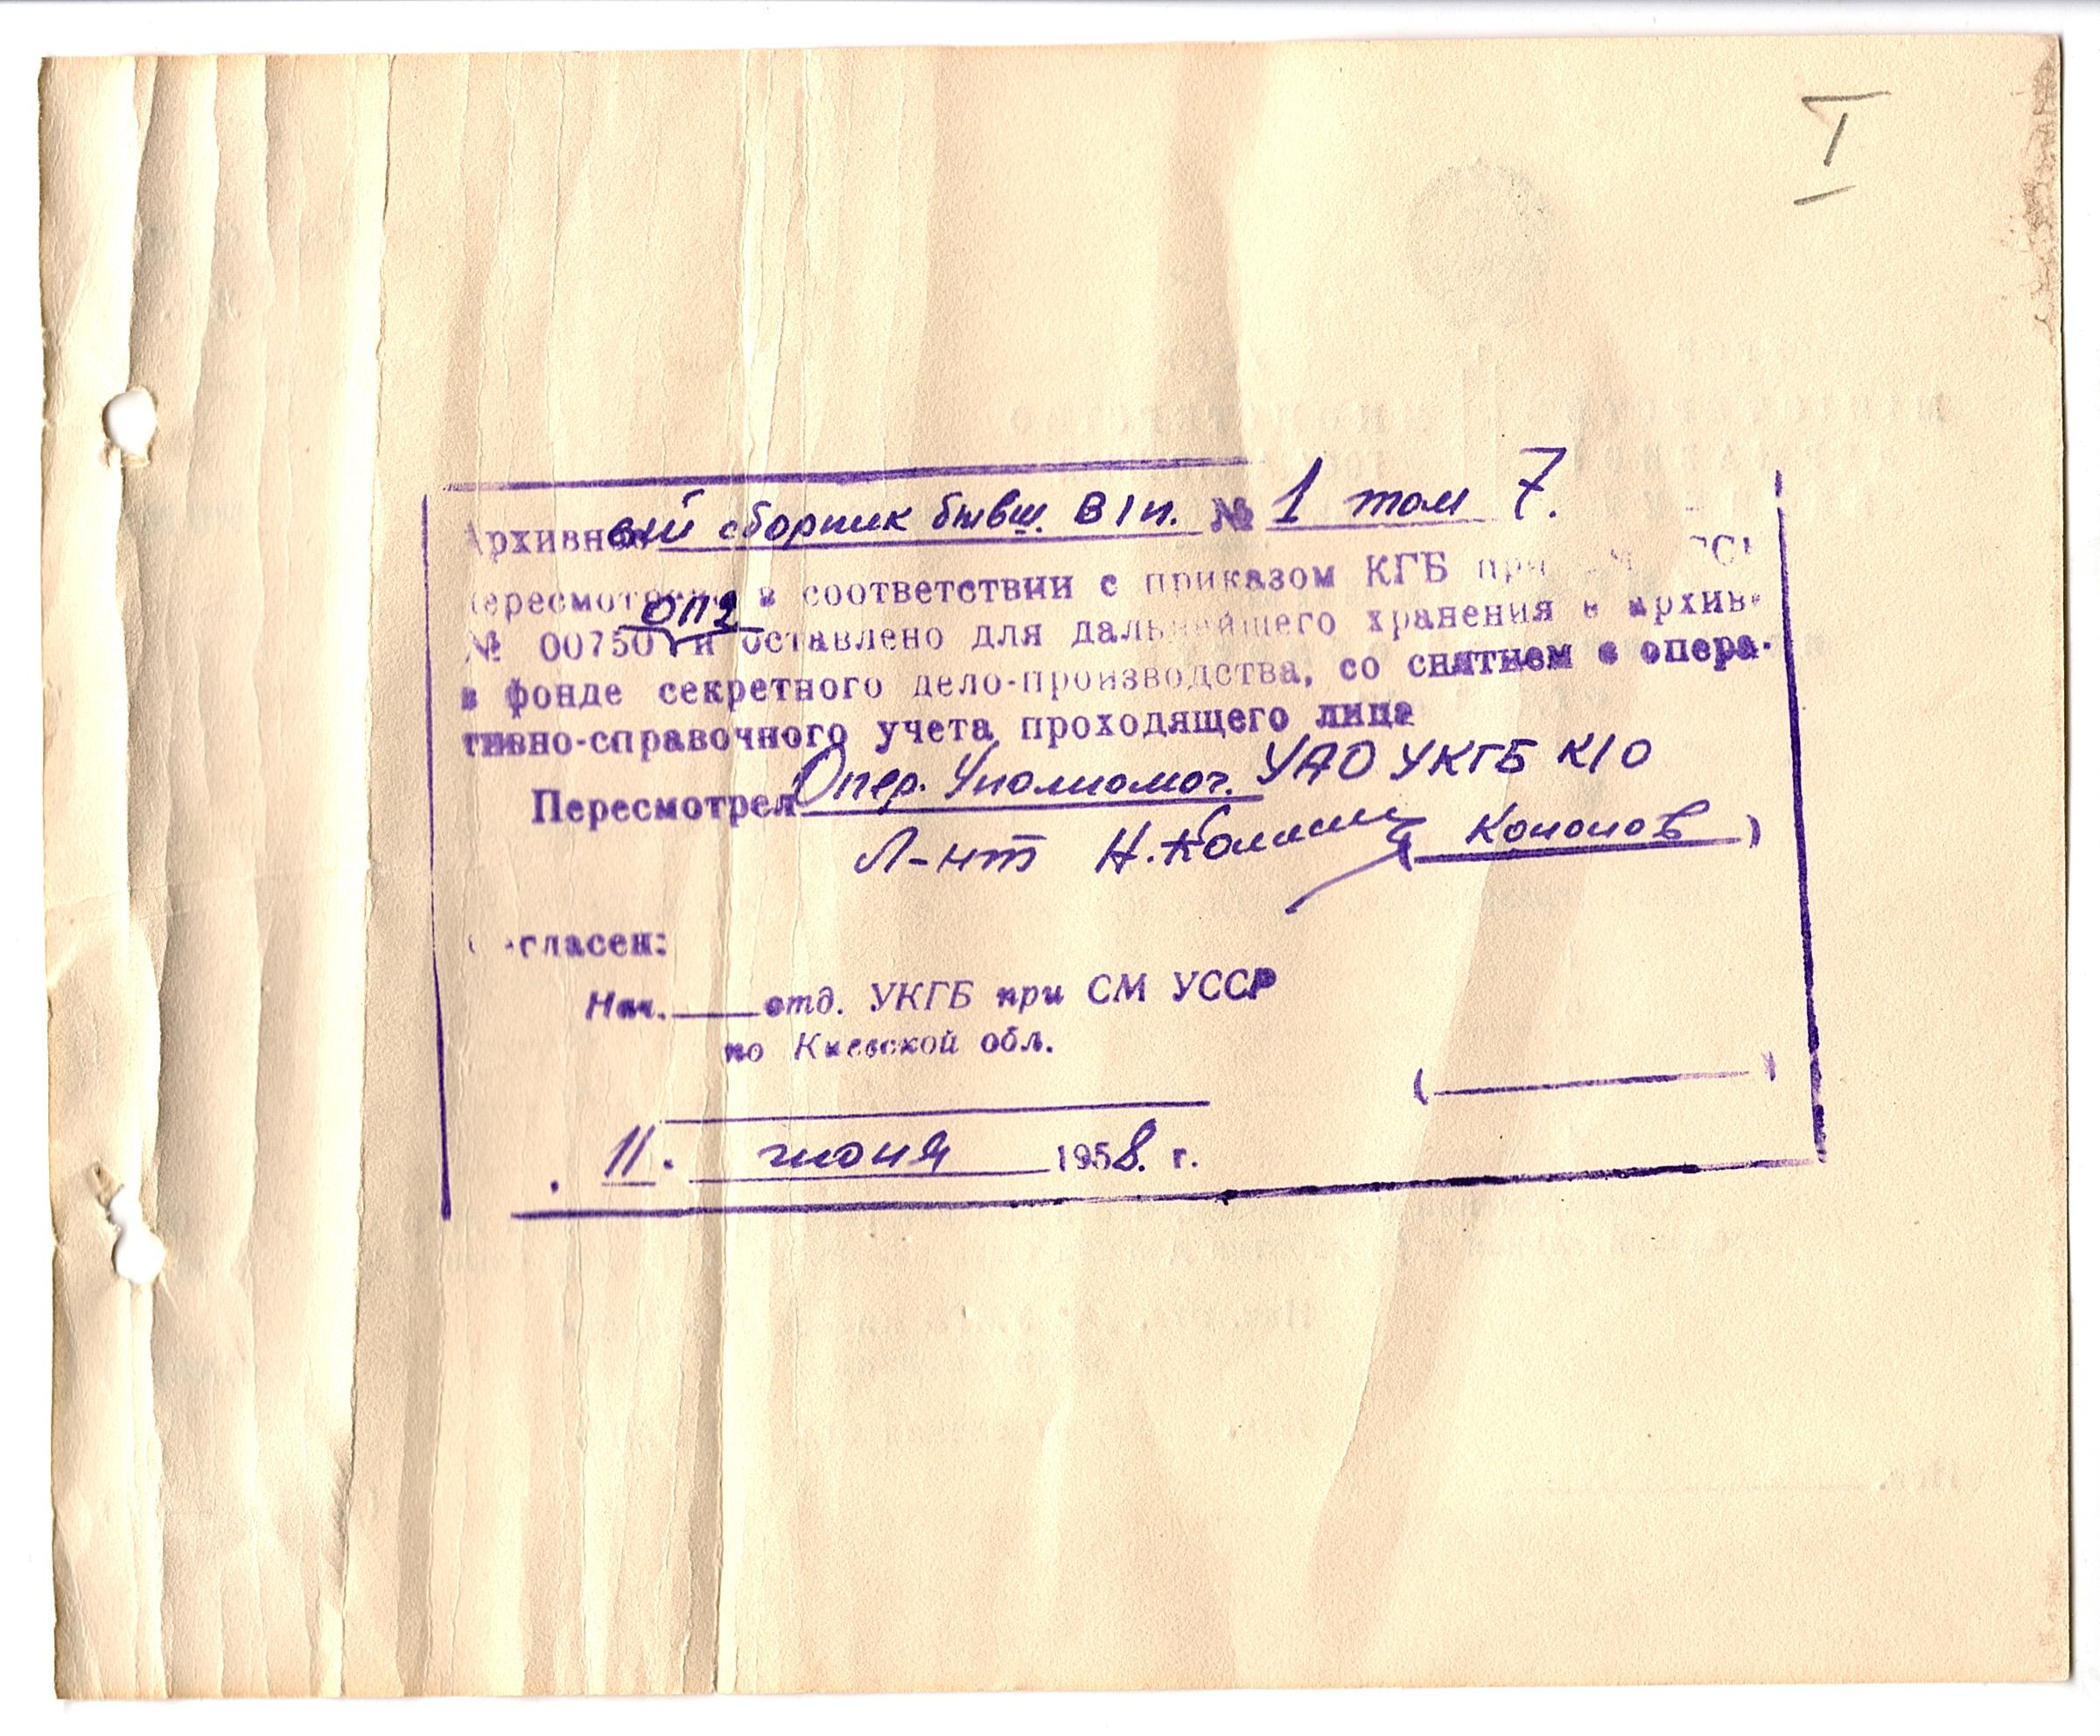 I
Архивный сборник бывш. В1п. № 1 том 7.
пересмотрено в соответствии с приказом КГБ при СМ
оп2
№ 00750 и оставлено для дальнейшего хранения в архиве
в фонде секретного дело-производства, со снятием с опера-
тивно-справочного учета проходящего лица
Пересмотрел Опер. Уполномоч. УАО УКГБ К/О
Л-нт Н. (Кононов)
Согласен:
Нач. ____ отд. УКГБ при СМ УССР
по Киевской обл.
( ________ )
11. июня 1958. г.